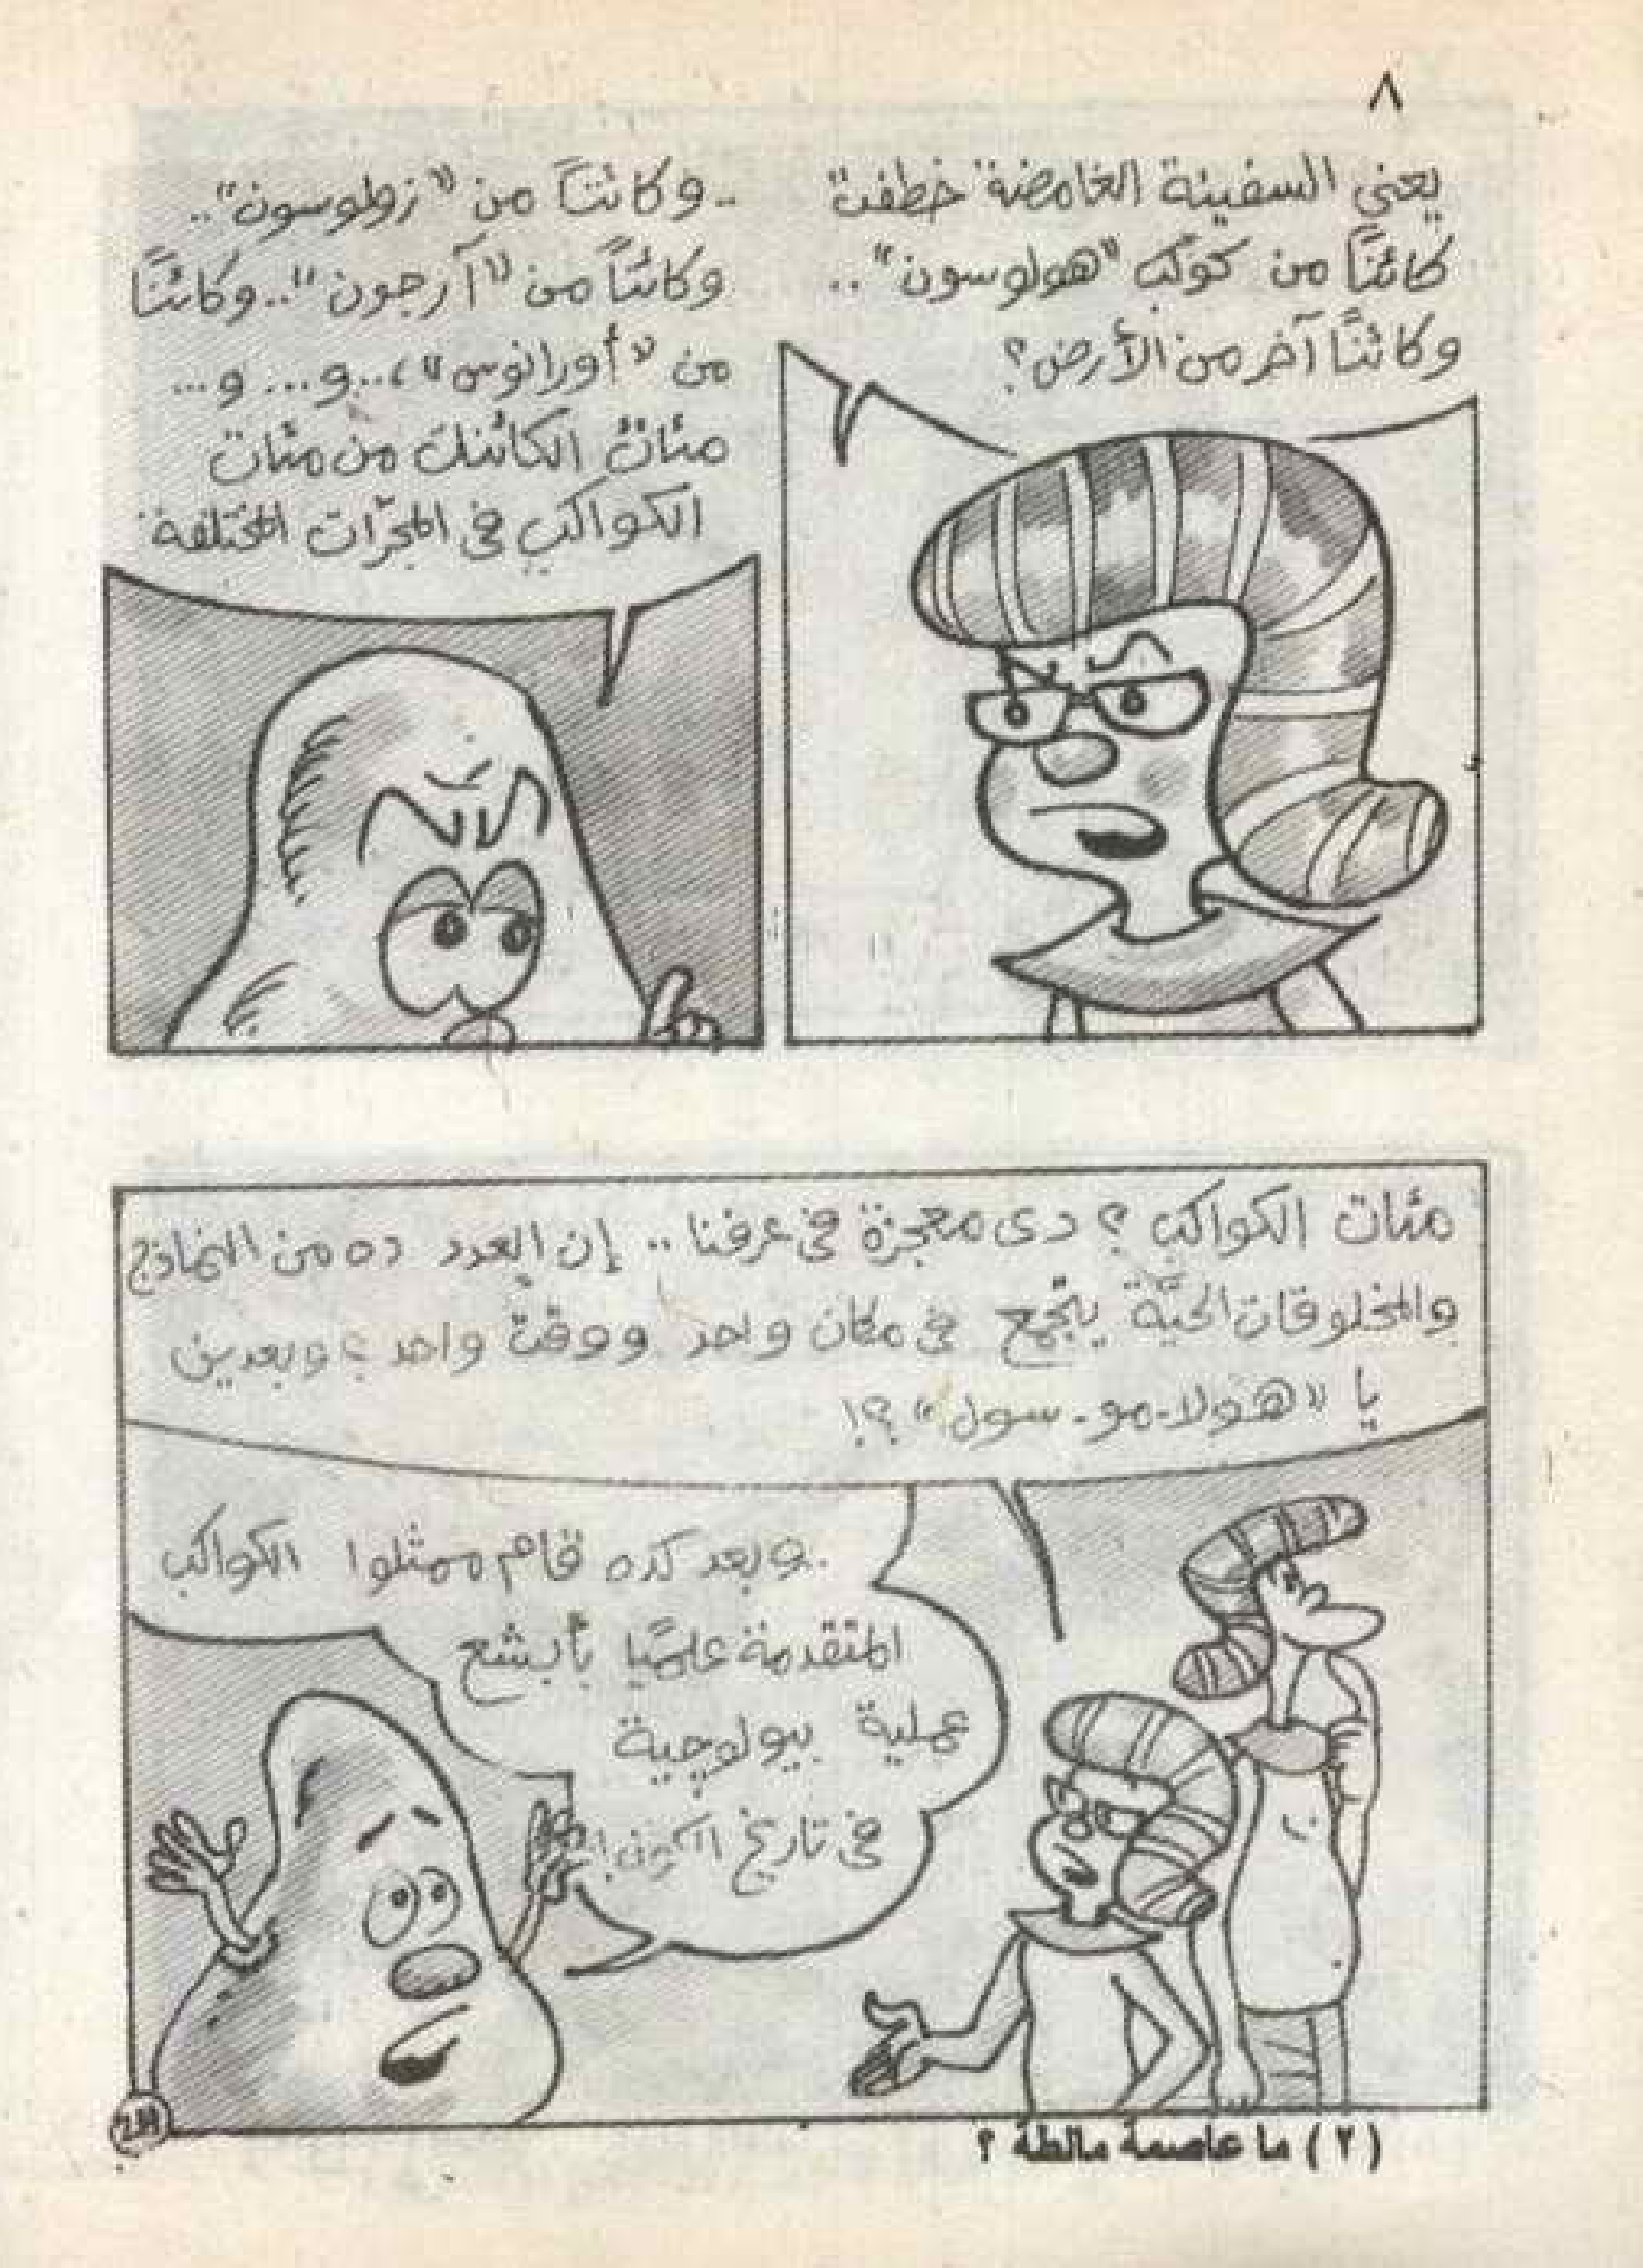 ٨
يعنى السفينة الغامضة خطفت
كائنًا من كوكب "هولوسون"..
وكائنًا آخر من الأرض؟
..وكائنًا من "زولوسون"..
وكائنًا من "آرجون"..وكائنًا
من "أورانوس"،..و...و...
مئات الكائنات من مئات
الكواكب فى المجرّات المختلفة
مئات الكواكب؟ دى معجزة فى عرفنا.. إن العدد ده من النماذج
والمخلوقات الحيّة يتجمع فى مكان واحد ووقت واحد؟ وبعدين
يا "هولا-مو-سول"؟!
..وبعد كده قام ممثلوا الكواكب
المتقدمة علميًا بأبشع
عملية بيولوچية
فى تاريخ الكون!
(٢) ما عاصمة مالطة ؟